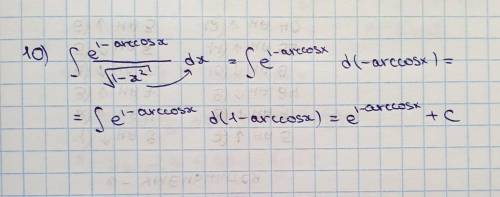 10) ∫ e^(1-arccosx) / √(1-x²) dx = ∫ e^(1-arccosx) d(-arccosx) =
= ∫ e^(1-arccosx) d(1-arccosx) = e^(1-arccosx) + C